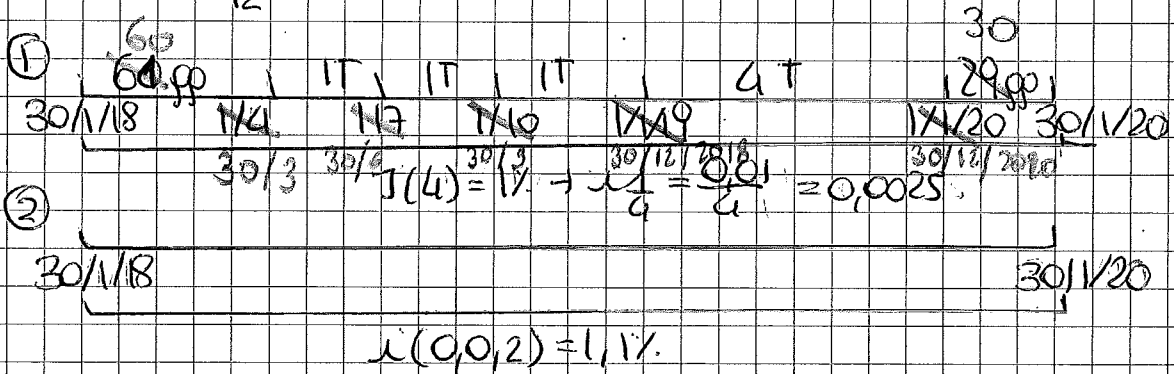 12
60 30
① 61 gg 1T 1T 1T 4T 29 gg
30/1/18 1/4 1/7 1/10 1/1/19 1/1/20 30/1/20
30/3 30/6 30/9 30/12/2018 30/12/2020
J(4) = 1% → i 1/4 = 0,01/4 = 0,0025
②
30/1/18 30/1/20
i(0,0,2) = 1,1%